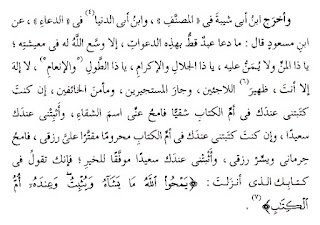 وأخرَج ابنُ أبى شيبةَ فى « المصنَّفِ » ، وابنُ أبى الدنيا(٤) فى « الدعاءِ » ، عن
ابنِ مسعودٍ قال : ما دعا عبدٌ قطُّ بهذِه الدعواتِ ، إلا وسَّع اللَّهُ له فى معيشتِه ؛
يا ذا المنِّ ولا يُمَنُّ عليه ، يا ذا الجلالِ والإكرامِ ، يا ذا الطَّوْلِ(٥) « والإنعامِ » ، لا إلهَ
إلا أنتَ ، ظهيرَ(٦) اللاجئين ، وجارَ المستجيرين ، ومأمنَ الخائفين ، إن كنتَ
كتبتَنى عندَك فى أمِّ الكتابِ شقيًّا فامحُ عنى اسمَ الشقاءِ ، وأَثْبِتْنى عندَك
سعيدًا ، وإن كنتَ كتبتَنى عندَك فى أمِّ الكتابِ محرومًا مقتَّرًا علىَّ رزقى ، فامحُ
حِرمانى ويسِّرْ رزقى ، وأَثْبِتْنى عندَك سعيدًا موفَّقًا للخيرِ ؛ فإنك تقولُ فى
كتابِك الذى أنزلتَ : ﴿يَمْحُوا۟ ٱللَّهُ مَا يَشَآءُ وَيُثْبِتُ ۖ وَعِندَهُۥٓ أُمُّ
ٱلْكِتَـٰبِ﴾(٧) .